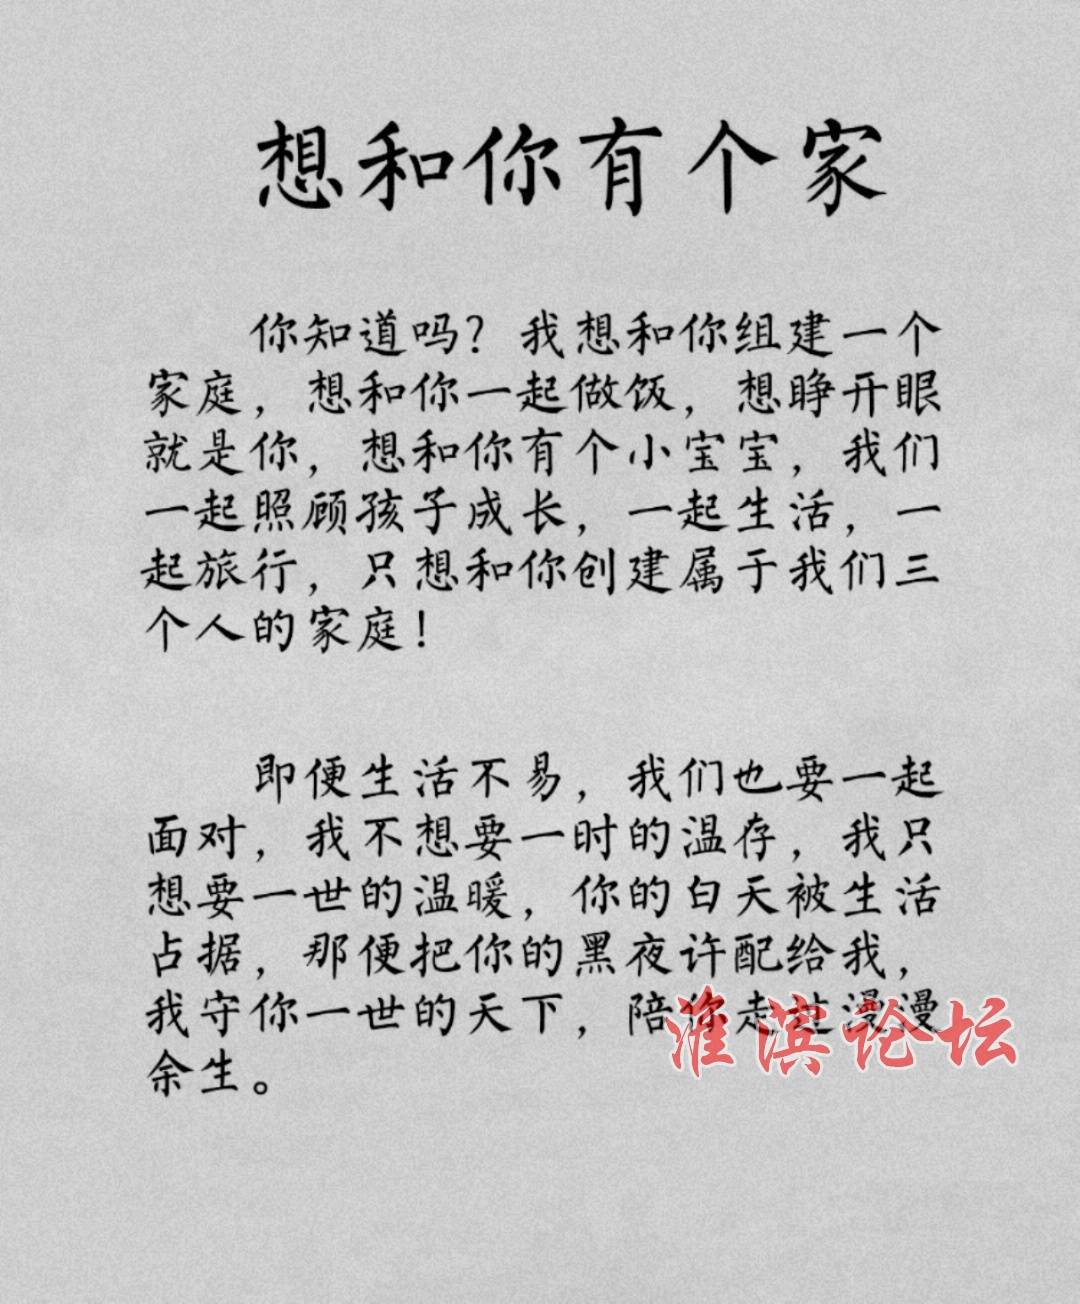 想和你有个家
你知道吗？我想和你组建一个
家庭，想和你一起做饭，想睁开眼
就是你，想和你有个小宝宝，我们
一起照顾孩子成长，一起生活，一
起旅行，只想和你创建属于我们三
个人的家庭！
即便生活不易，我们也要一起
面对，我不想要一时的温存，我只
想要一世的温暖，你的白天被生活
占据，那便把你的黑夜许配给我，
我守你一世的天下，陪你走过漫漫
余生。
淮滨论坛